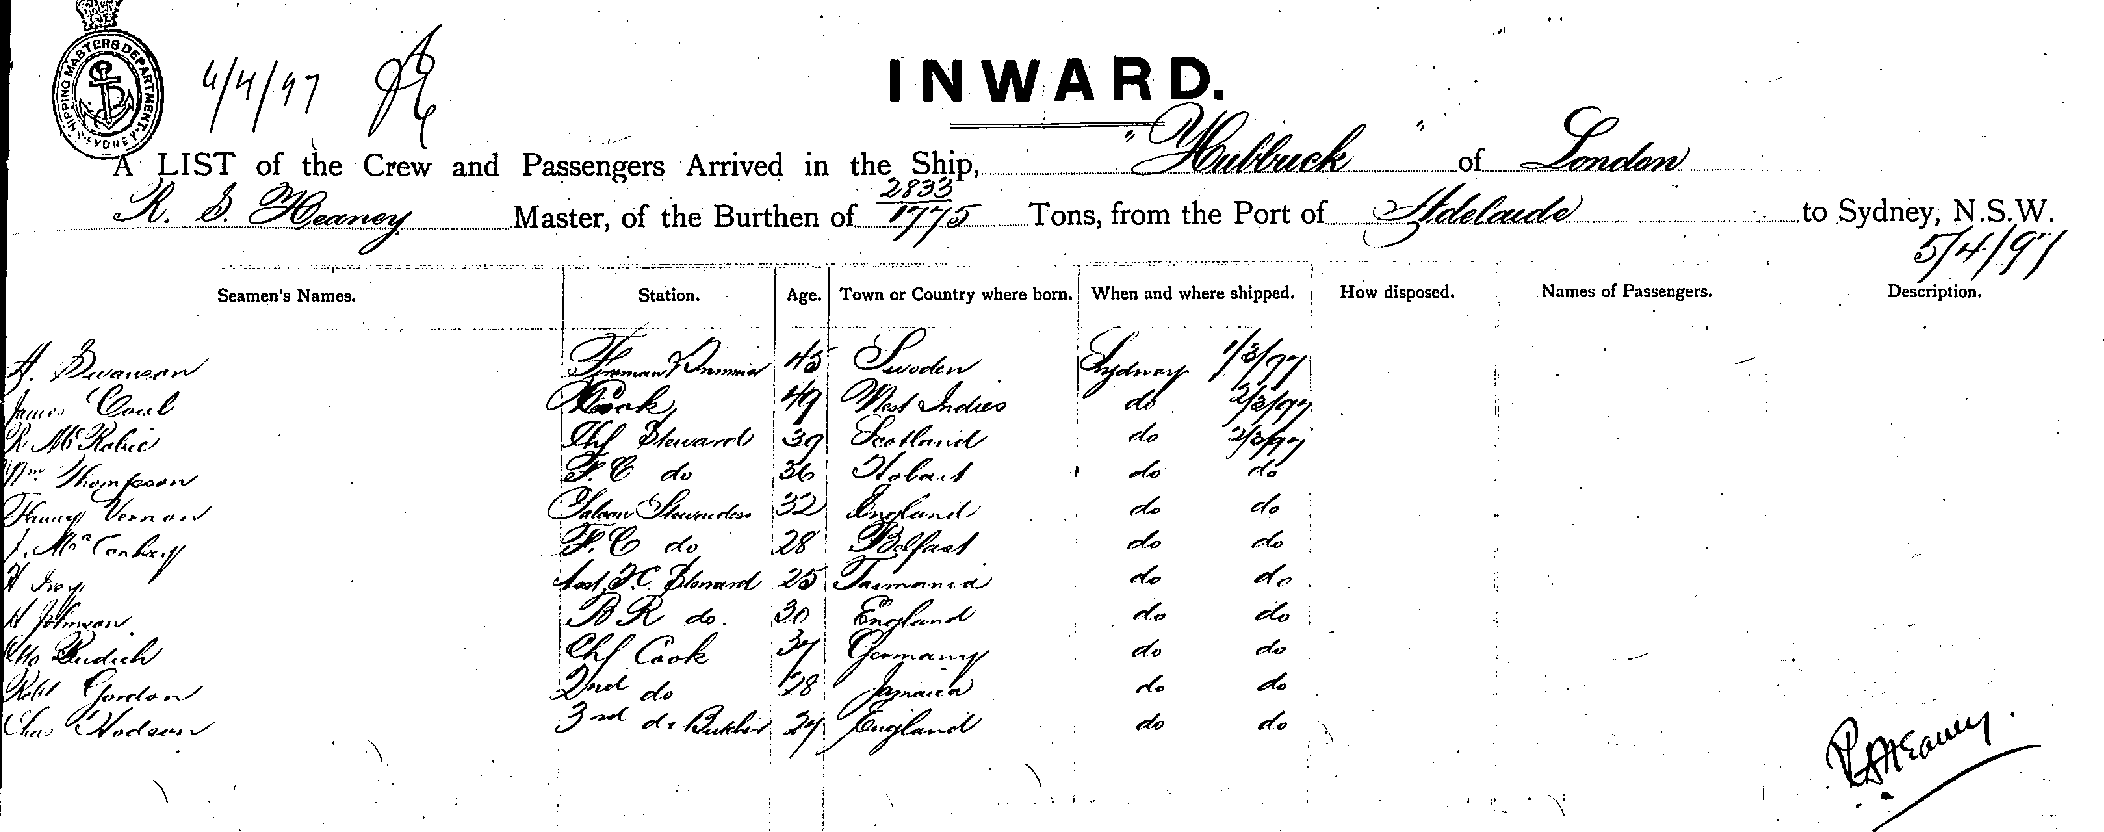 SHIPPING MASTERS DEPARTMENT
SYDNEY
6/4/97
INWARD.
A LIST of the Crew and Passengers Arrived in the Ship, "Hubbuck" of London
R. S. Heaney Master, of the Burthen of 2833 1775 Tons, from the Port of Adelaide to Sydney, N.S.W.
5/4/97
Seamen's Names. Station. Age. Town or Country where born. When and where shipped. How disposed. Names of Passengers. Description.
A. Swanson 45 Sweden Sydney 1/3/97
James Cook 49 West Indies do 2/3/97
R McRobie Chf Steward 39 Scotland do 2/3/97
Wm Thompson F.C do 36 Hobart do do
Fanny Vernon Saloon Stewardess 32 England do do
J. F.C do 28 Belfast do do
H Ivey Asst F.C. Steward 25 Tasmania do do
H Johnson B R do. 30 England do do
Chf Cook 37 Germany do do
Robt Gordon 2nd do 28 Jamaica do do
Chas Hodson 3rd do Butcher 24 England do do
R S Heaney.